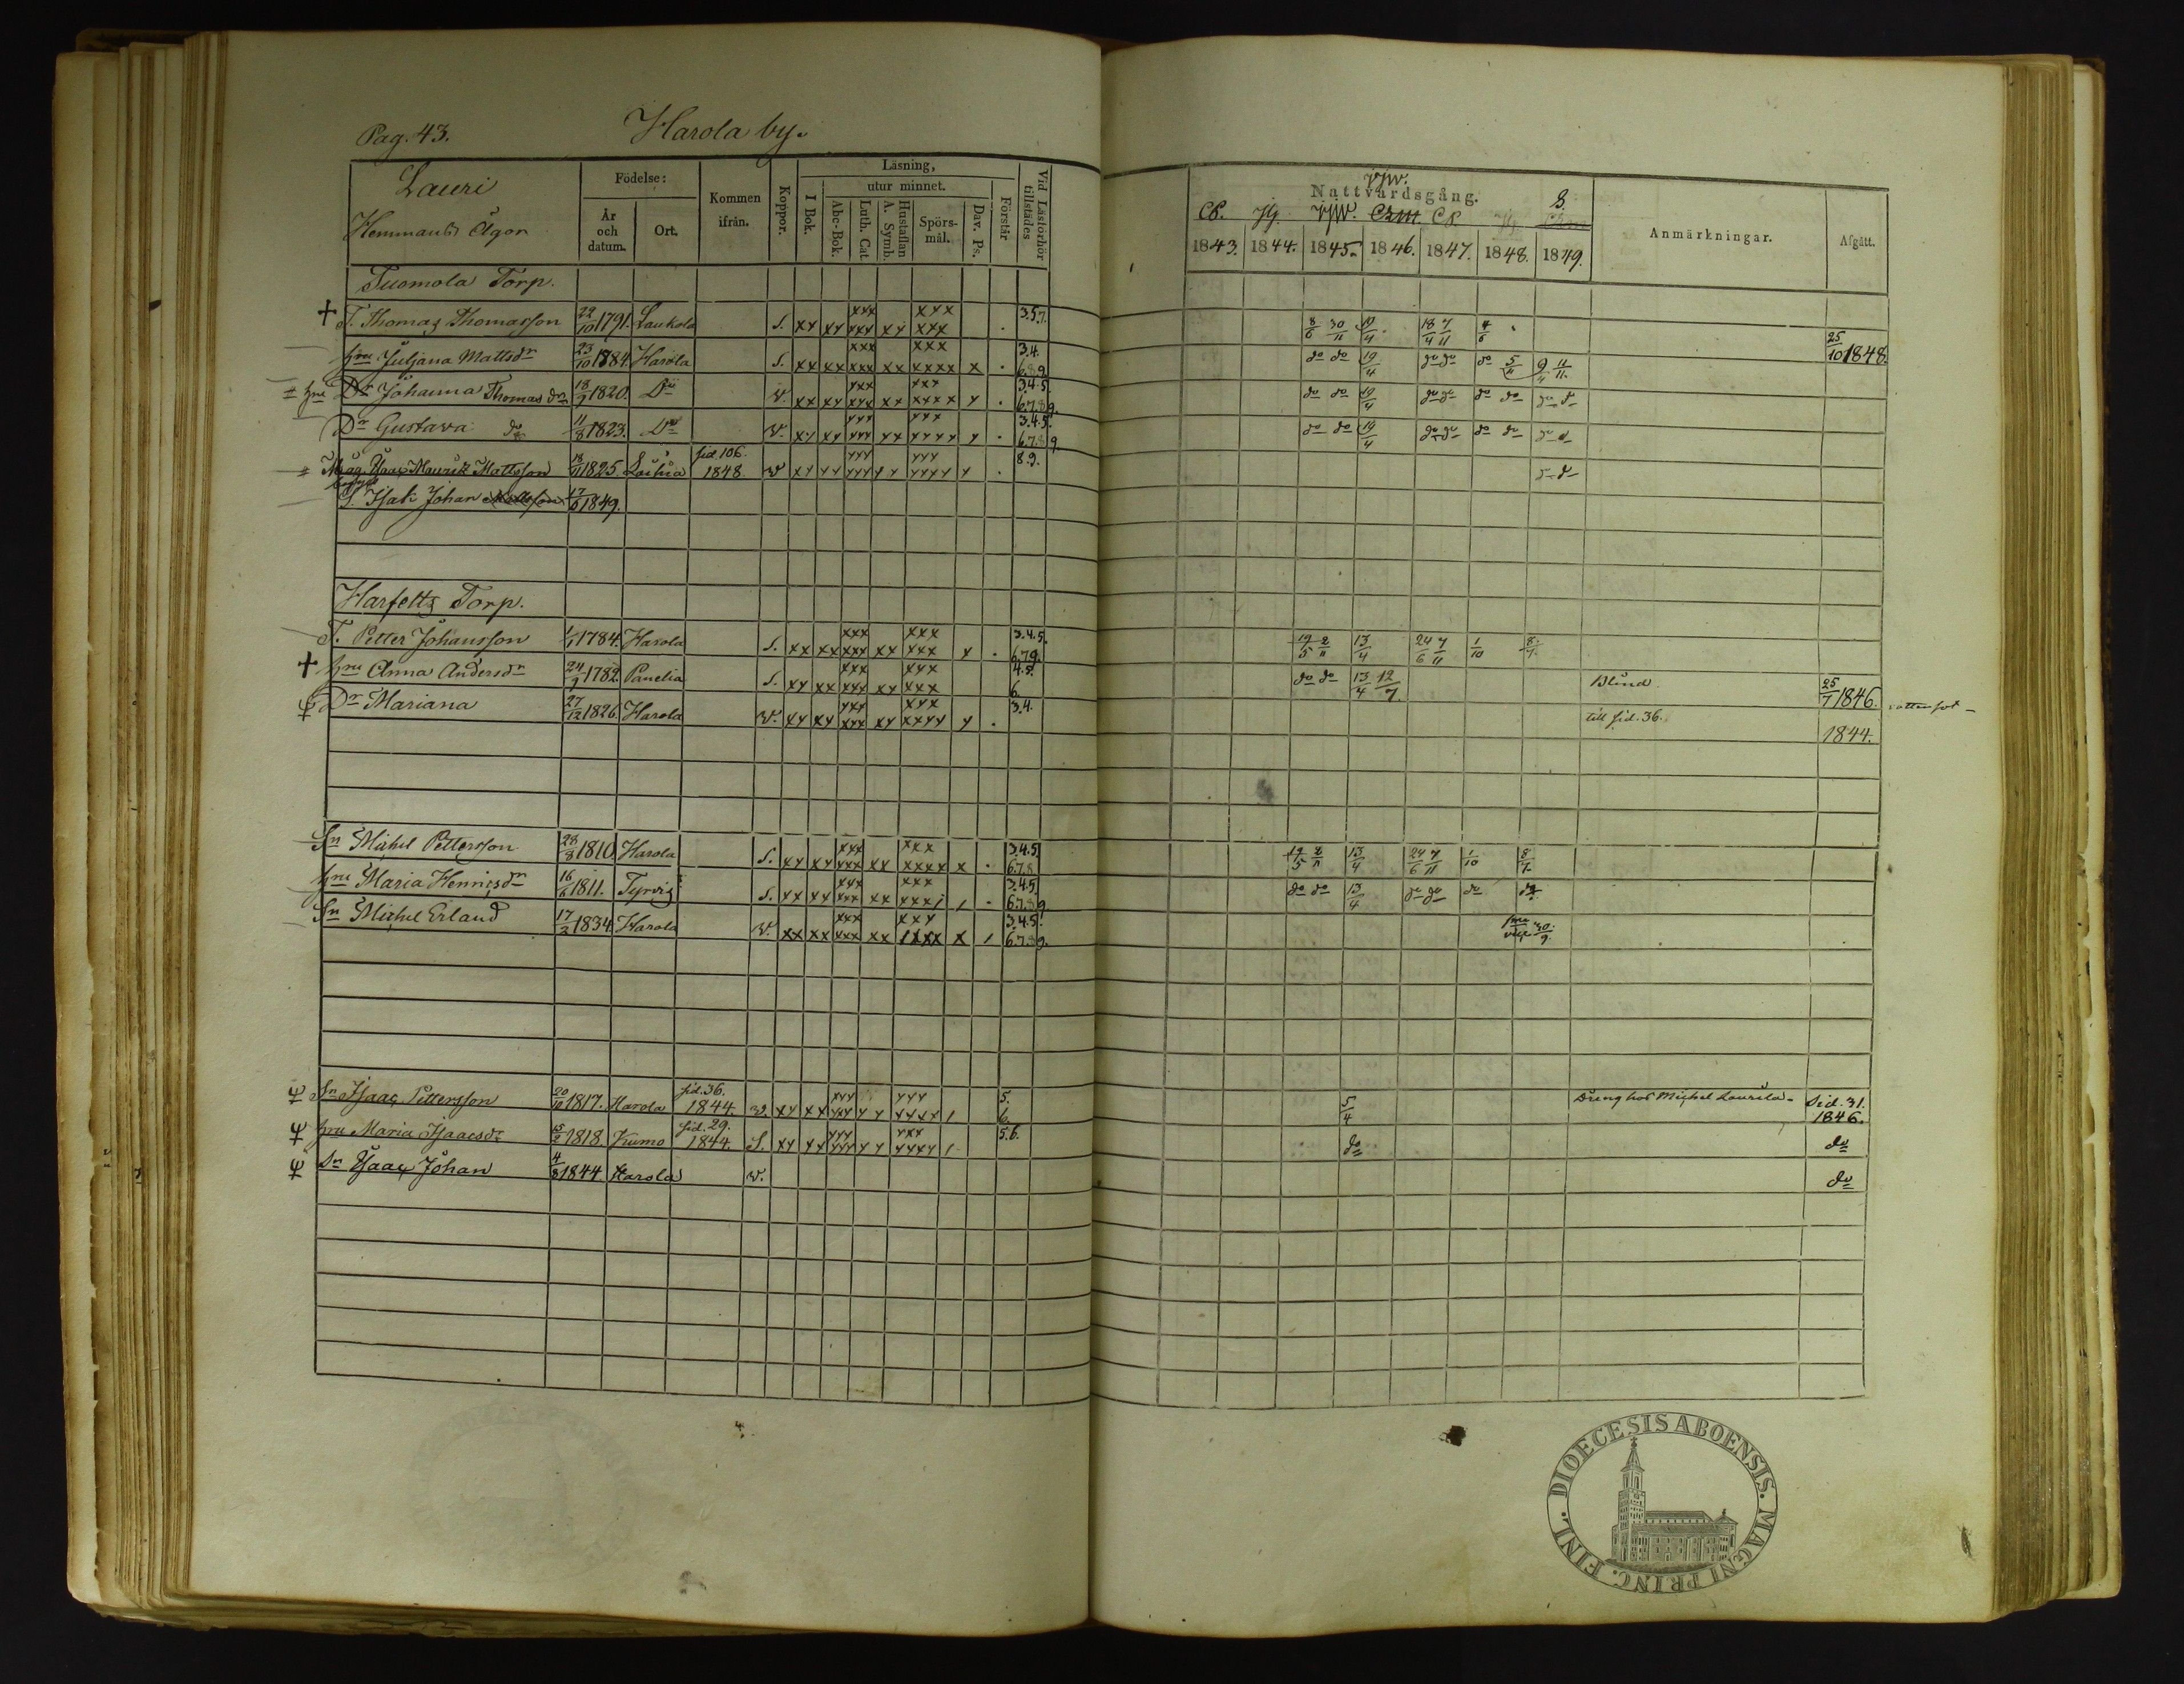 Pag. 43. Harola by.
Lauri
Hemmans Ägor
Födelse:
År och datum.
Ort.
Kommen ifrån.
Koppor.
Läsning,
I Bok.
utur minnet.
Abc-Bok.
Luth. Cat
Hustaflan A. Symb.
Spörsmål.
Dav. Ps.
Förstår
Vid Läsförhör tillstädes
VJW.
Nattvardsgång.
CP. JG. VJW. CP. JG. S.
1843. 1844. 1845. 1846. 1847. 1848. 1849.
Anmärkningar.
Afgått.
Tuomola Torp.
T. Thomas Thomasson 22/10 1791. Laukola S. xx xx xxx xxx xx xxx xxx 3.5.7. 8/6 30/11 19/4 18/4 7/11 4/6 25/10 1848.
hru Juljana Mattsdr 23/10 1884. Harola S. xx xx xxx xxx xx xxx xxxx x 3.4. 6.8.9. do do 19/4 do do do 5/11 9/4 11/11
hru Dr Johanna Thomasdr 18/9 1820. Do W. xx xx xxx xxx xx xxx xxxx x 3.4.5. 6.7.8.9. do do 19/4 do do do do do d
Dr Gustava do 11/8 1823. Do W. xx xx xxx xxx xx xxx xxxx x 3.4.5. 6.7.8.9 do do 19/4 do do do do do d
Måg Isaac Maurits Mattsson 18/11 1825 Laihia sid. 106. 1848. W xx xx xxx xxx xx xxx xxxx x 8.9.
S. Isak Johan Mattsson 17/6 1849.
Harfelts Torp.
T. Petter Johansson 1/1 1784. Harola S. xx xx xxx xxx xx xxx xxx x 3.4.5. 6.7.9. 19/5 2/11 13/4 24/6 7/11 1/10 8/7
hru Anna Andersdr 24/9 1782. Panelia S. xx xx xxx xxx xx xxx xxx 4.5. 6. do do 13/4 12/7 Blind. 25/7 1846.
Dr Mariana 27/12 1826. Harola W. xx xx xxx xxx xx xxx xxxx x 3.4. till sid. 36. 1844.
Sn Michel Pettersson 28/8 1810. Harola S. xx xx xxx xxx xx xxx xxxx x 3.4.5. 6.7.8. 19/5 2/11 13/4 24/6 7/11 1/10 8/7
hru Maria Henricsdr 16/6 1811. Tyrvis S. xx xx xxx xxx xx xxx 3.4.5. 6.7.8.9. do do 13/4 do do do do
Sn Michel Erland 17/2 1834. Harola W. xx xx xxx xxx xx xxx xxxx x 3.4.5. 6.7.8.9. 30/9.
Sn Isaac Pettersson 20/10 1817. Harola sid. 36. 1844. W. xx xx xxx xxx xx xxx xxxx 5. 6. 5/4 Dräng hos Michel Laurila Sid. 31. 1846.
hru Maria Isaacsdr 15/2 1818. Kumo sid. 29. 1844. S. xx xx xxx xxx xx xxx xxxx 5.6. do do
Sn Isaac Johan 4/8 1844. Harola W. do
DIOECESIS ABOENSIS. MAGNI PRINC. FINL.